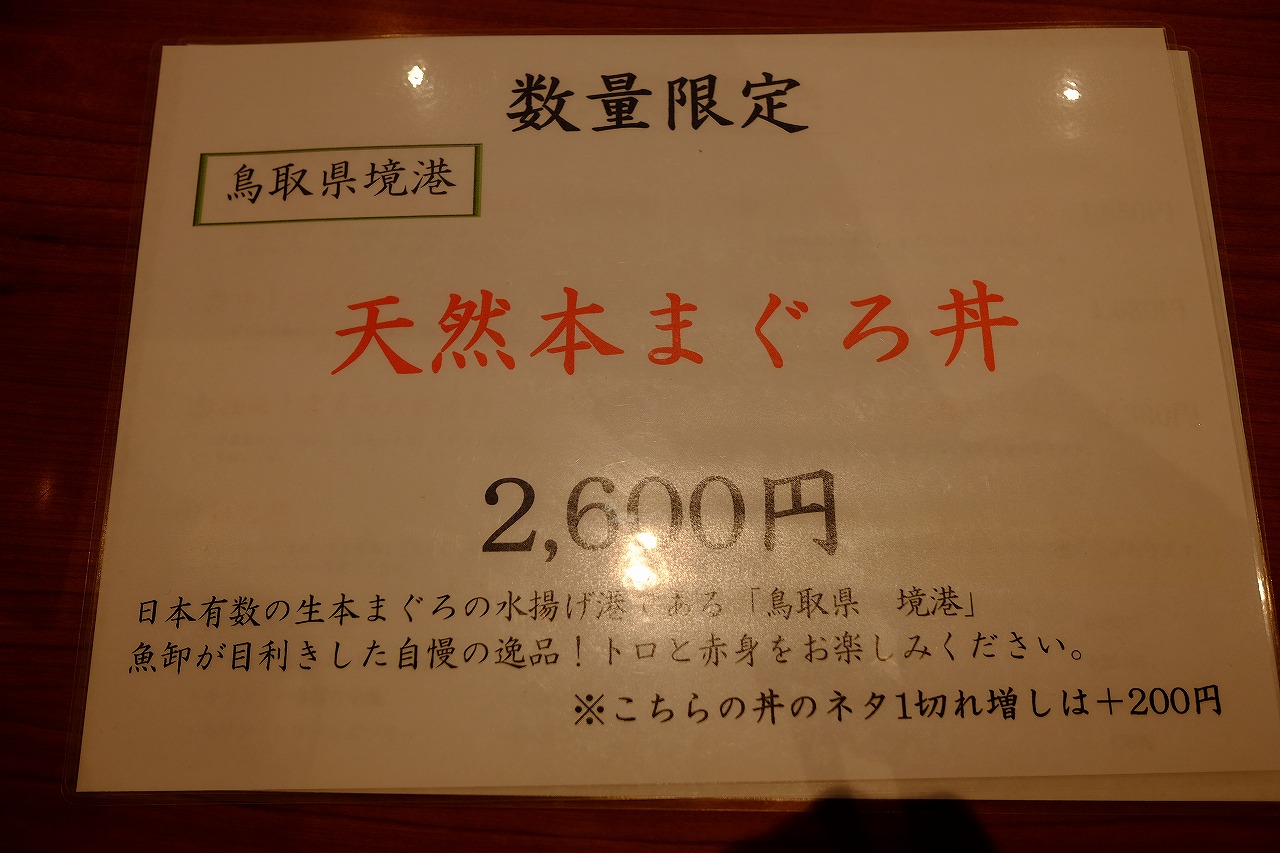 数量限定
鳥取県境港
天然本まぐろ丼
2,600円
日本有数の生本まぐろの水揚げ港である「鳥取県　境港」
魚卸が目利きした自慢の逸品！トロと赤身をお楽しみください。
※こちらの丼のネタ1切れ増しは＋200円